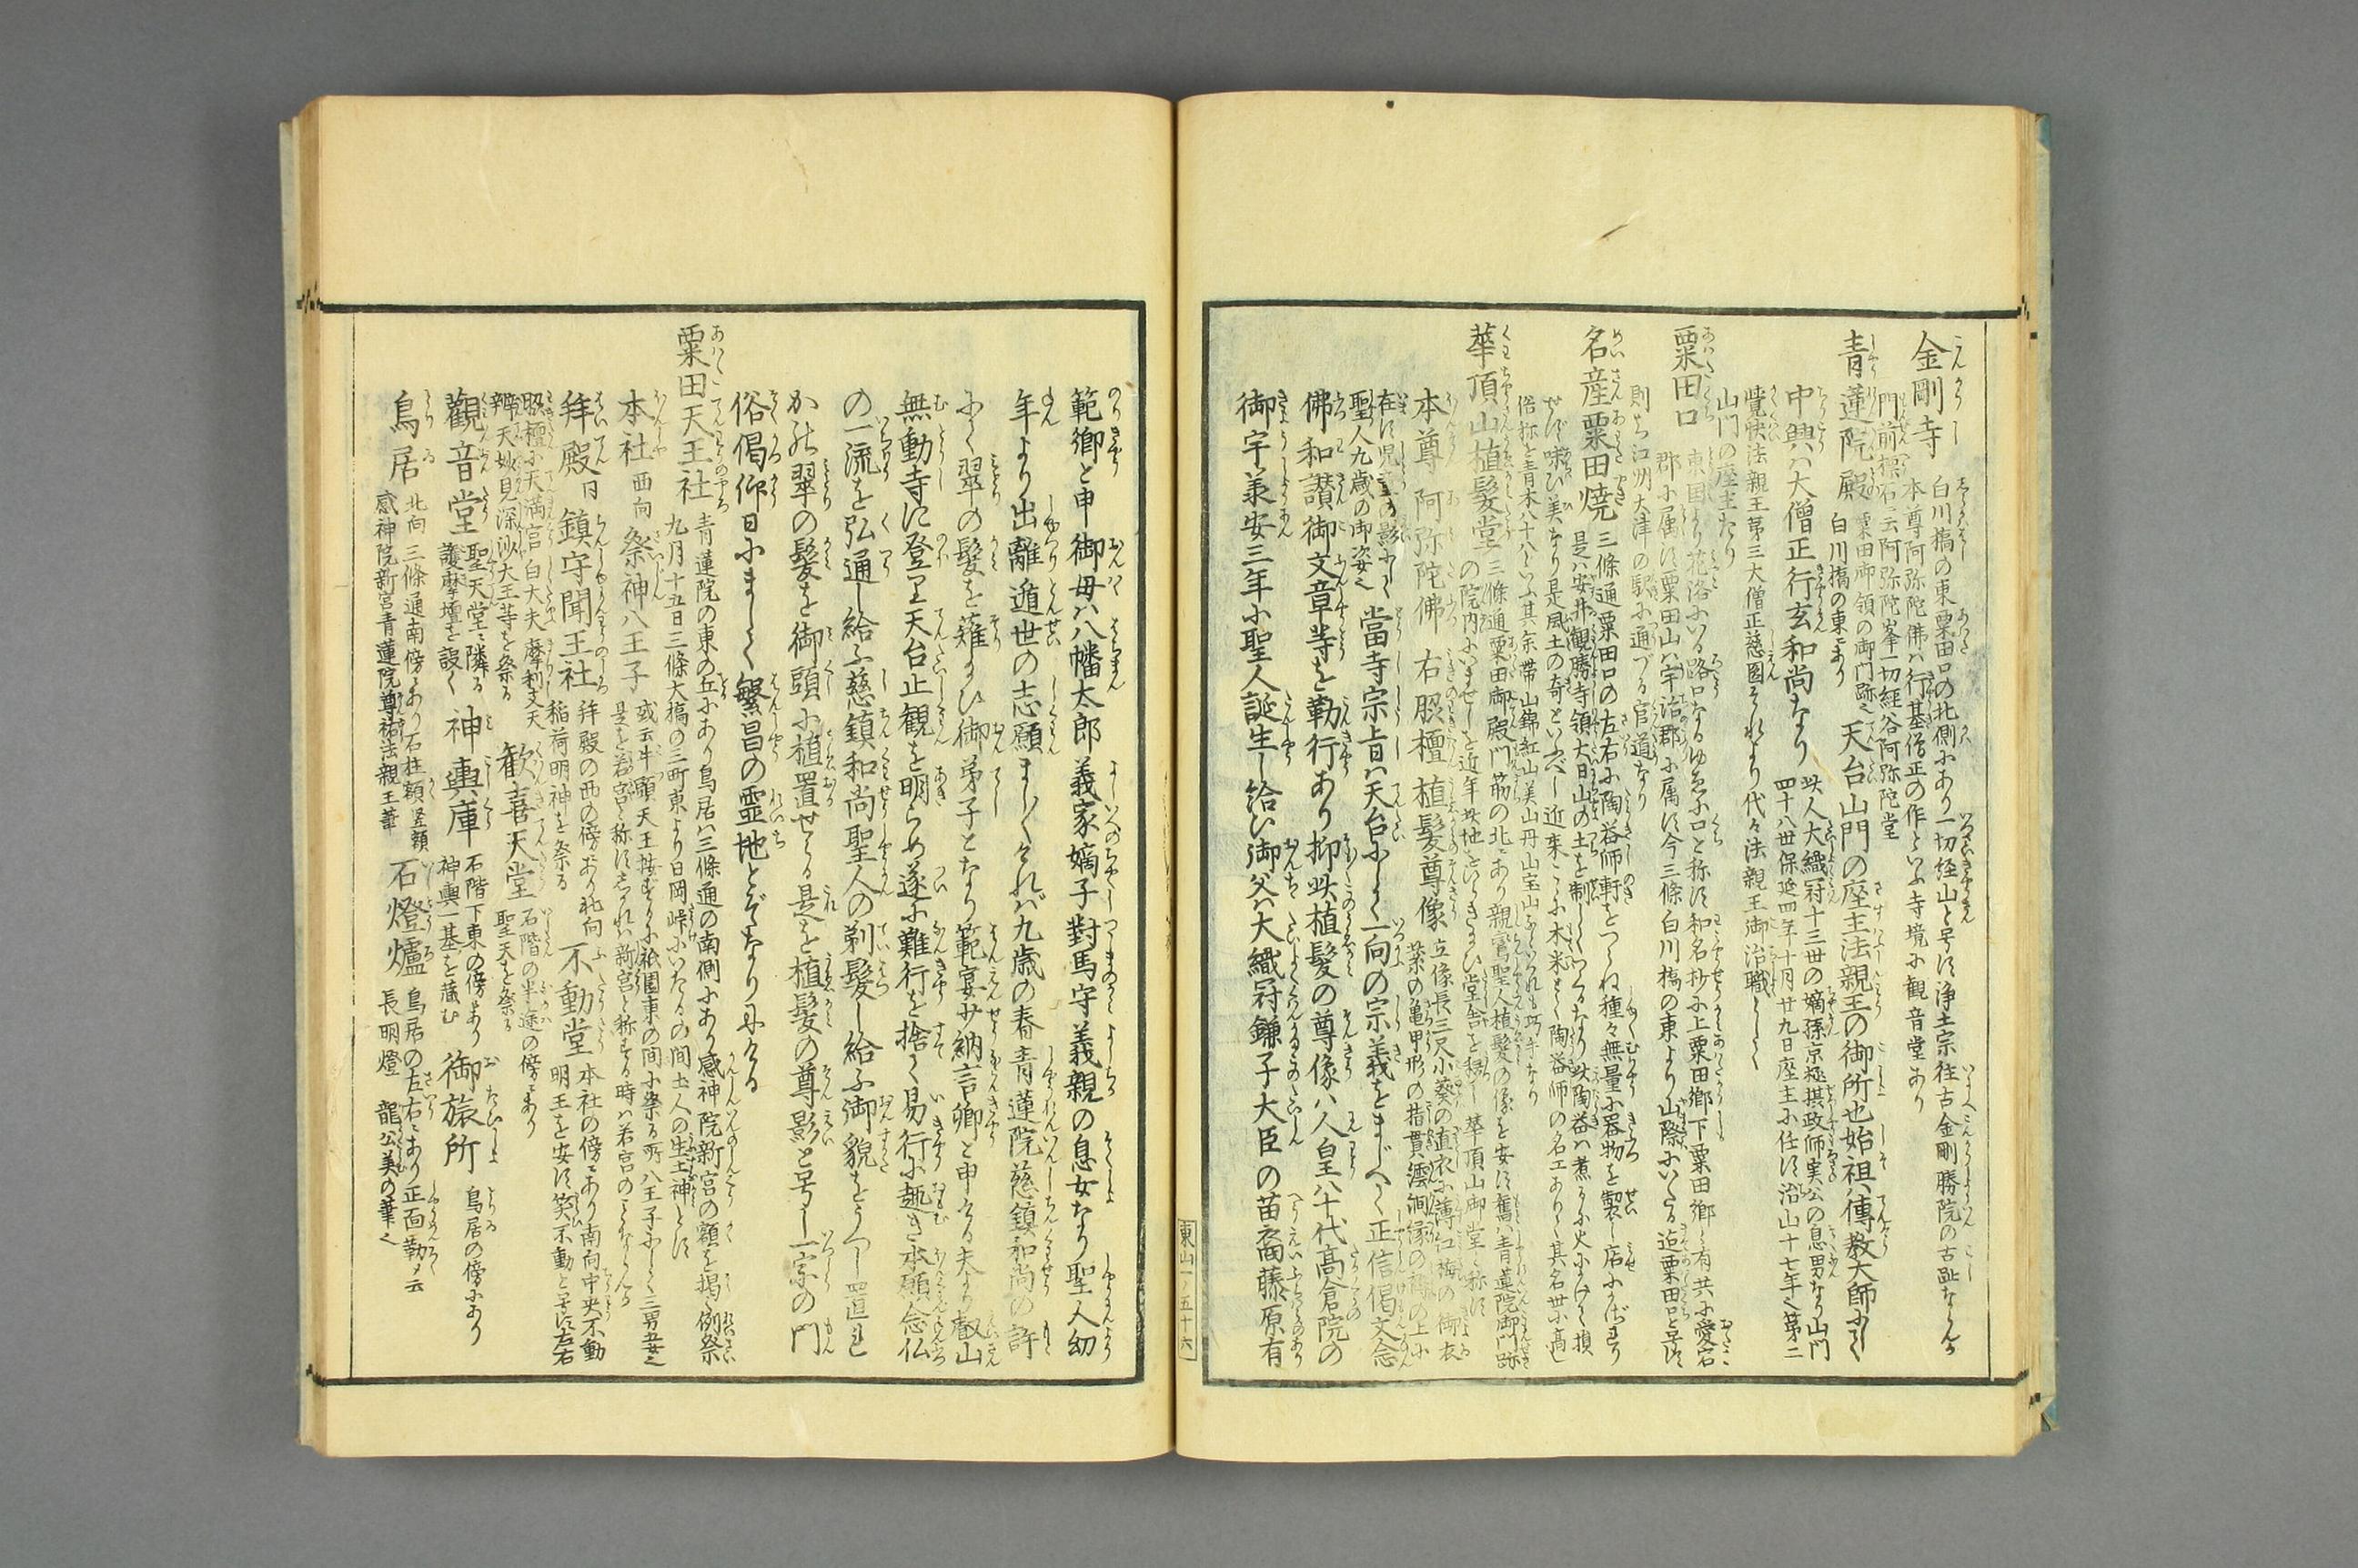 金剛寺 白川橋の東粟田口の北側にあり一切経山と号す浄土宗往古金剛勝院の古趾ならんか
本尊阿弥陀佛ハ行基僧正の作といふ寺境に観音堂あり
門前標石云阿弥陀峯一切経谷阿弥陀堂
青蓮院殿 粟田御領の御門跡也
白川橋の東にあり
天台山門の座主法親王の御所也始祖ハ傳教大師にして
中興ハ大僧正行玄和尚なり
此人大織冠十三世の嫡孫京極摂政師実公の息男なり山門
四十八世保延四年十月廿九日座主に任す治山十七年也第二
覚快法親王第三大僧正慈圓それより代々法親王御治職として
山門の座主たり
粟田口 東国より花洛にいる路口なるゆゑに口と称す和名抄に上粟田郷下粟田郷と有共に愛宕
郡に属す粟田山ハ宇治郡に属す今三條白川橋の東より山際にいたる迄粟田口と号す
則ち江州大津の駅に通づる官道なり
名産粟田焼 三條通粟田口の左右に陶器師軒をつらね種々無量に器物を製し店にかざり
是ハ安井観勝寺領大日山の土を制してつくるなり此陶器ハ煮るに火にかけて損
せず味ひ美なり是風土の奇といふべし近来こゝに木米とて陶器師の名工ありて其名世に高し
俗称を青木八十八といふ其余帯山錦紅山美山丹山宝山なといつれも巧手なり
華頂山植髪堂 三條通粟田御殿門前の北にあり親鸞聖人植髪の像を安す舊ハ青蓮院御門跡
の院内にいませしを近年此地をひらきたまひ堂舎を移し華頂山御堂と称す
本尊 阿弥陀佛 右脇檀 植髪尊像 立像長三尺小葵の直衣に薄紅梅の御衣
葉の亀甲形の指貫繧繝縁の褥の上に
在す児童の影にして
聖人九歳の御姿也
當寺宗旨ハ天台にして一向の宗義をまじへて正信偈文念
佛和讃御文章等を勤行あり抑此植髪の尊像ハ人皇八十代高倉院の
御宇承安三年に聖人誕生し給ひ御父ハ大織冠鎌子大臣の苗裔藤原有
東山一ノ五十六
範卿と申御母ハ八幡太郎義家嫡子對馬守義親の息女なり聖人幼
年より出離遁世の志願ましましけれバ九歳の春青蓮院慈鎮和尚の許
にて翠の髪を薙たまひ御弟子となり範宴少納言卿と申ける夫より叡山
無動寺に登り天台止観を明らめ遂に難行を捨て易行に趣き本願念仏
の一流を弘通し給ふ慈鎮和尚聖人の剃髪し給ふ御貌をうつし置れ
かの翠の髪を御頭に植置せらる是を植髪の尊影と号し一宗の門
俗偈仰日にましして繁昌の霊地とぞなりにける
粟田天王社 青蓮院の東の丘にあり鳥居ハ三條通の南側にあり感神院新宮の額を掲く例祭
九月十五日三條大橋の三町東より日岡峠にいたるの間土人の生土神とす
本社 西向 祭神八王子 或云牛頭天王
是を若宮と称す
拜殿 同 鎮守聞王社 拜殿の西の傍にあり北向
稲荷明神を祭る
不動堂 本社の傍にあり南向中央不動
明王を安す笑不動と号す左右
脇檀に天満宮白大夫摩利支天
辨才天妙見深沙大王等を祭る
歓喜天堂 石階の半途の傍にあり
聖天を祭る
觀音堂 聖天堂に隣る
護摩壇を設く
神輿庫 石階下東の傍にあり
神輿一基を蔵む
御旅所 鳥居の傍にあり
鳥居 北向 三條通南傍にあり石柱額竪額
感神院新宮青蓮院尊祐法親王筆
石燈爐 鳥居の左右にあり正面勒して云
長明燈 龍公美の筆也